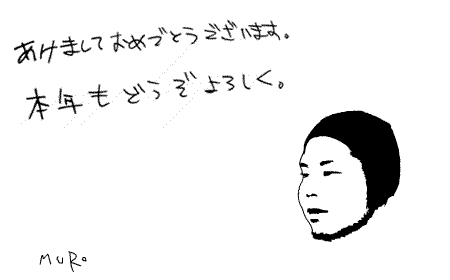 あけましておめでとうございます。
本年もどうぞよろしく。
MURO